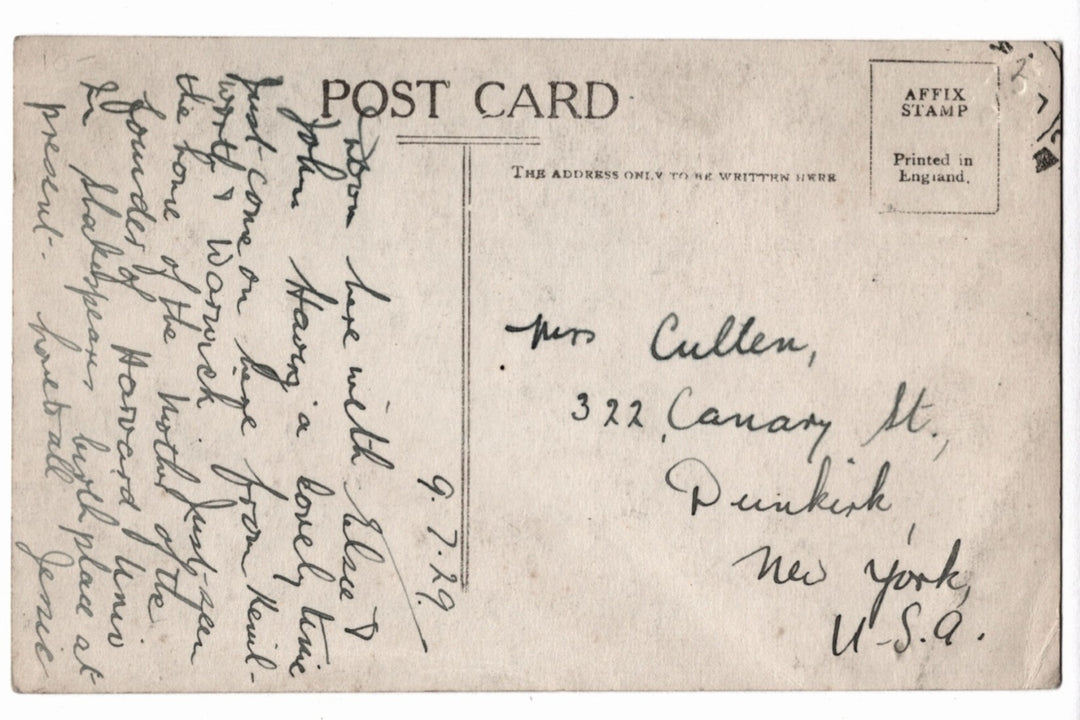 POST CARD
THE ADDRESS ONLY TO BE WRITTEN HERE
AFFIX
STAMP
Printed in
England.
9.7.29.
Down here with Elsie &
John Having a lovely time
Just come on here from Kenil-
worth & Warwick Just seen
the home of the Mother of the
founder of Harvard Univ
In Shakespeares birthplace at
present. love to all Jenie
Mrs Cullen,
322, Canary St.,
Dunkirk,
New York,
U.S.A.